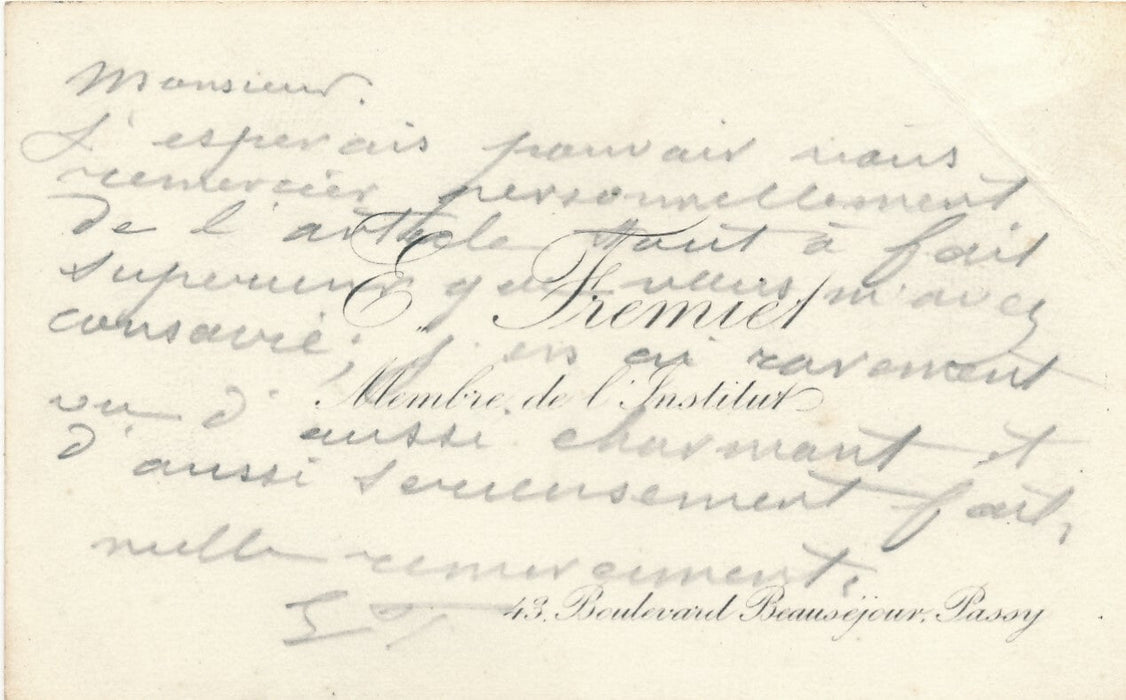 Monsieur.
J'esperais pouvoir vous
remercier personnellement
de l'article tout à fait
superieur que vous m'avez
consacré; j'en ai rarement
vu d'aussi charmant et
d'aussi serieusement fait,
mille remerciments.
EF
E. Fremiet
Membre de l'Institut
43, Boulevard Beauséjour, Passy